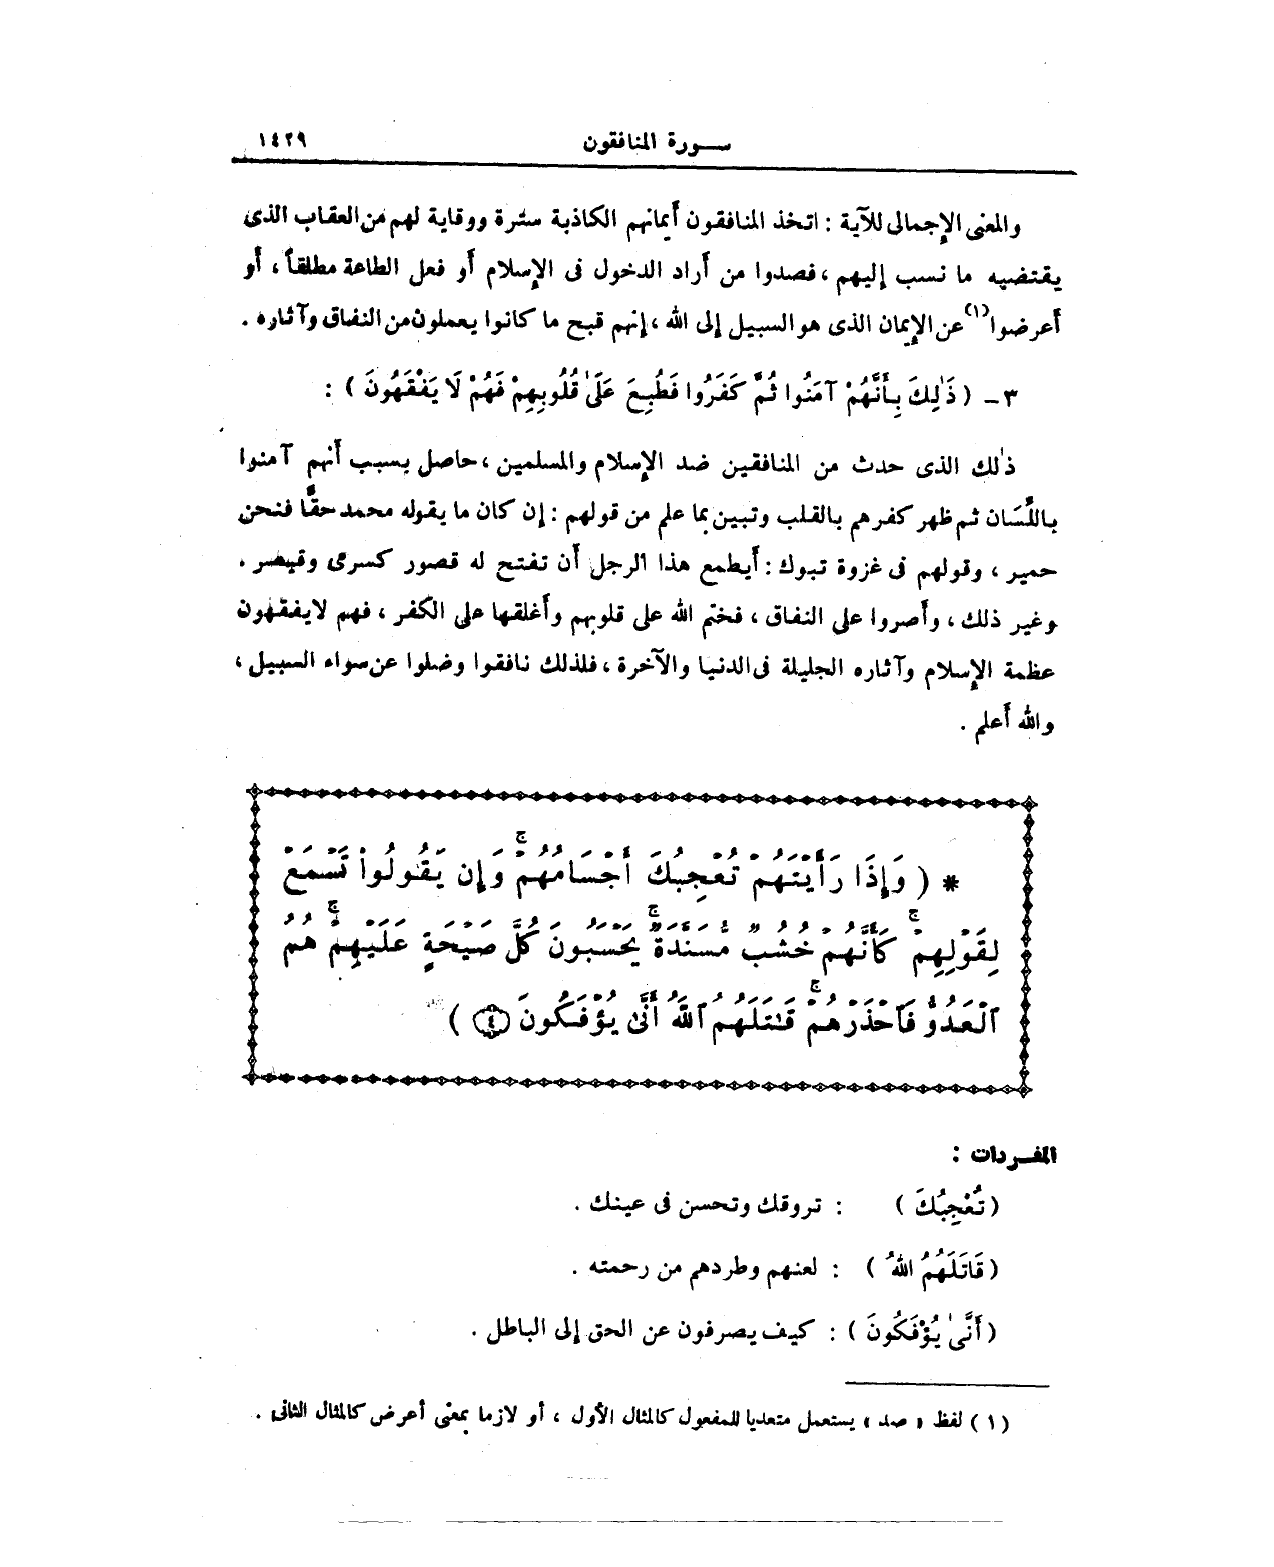 سورة المنافقون ١٤٢٩
والمعنى الإجمالى للآية : اتخذ المنافقون أيمانهم الكاذبة سترة ووقاية لهم من العقاب الذى
يقتضيه ما نسب إليهم ، فصدوا من أراد الدخول فى الإسلام أو فعل الطاعة مطلقاً ، أو
أعرضوا(١) عن الإيمان الذى هو السبيل إلى الله ، إنهم قبح ما كانوا يعملون من النفاق وآثاره .
٣ – ( ذَٰلِكَ بِأَنَّهُمْ آمَنُوا ثُمَّ كَفَرُوا فَطُبِعَ عَلَىٰ قُلُوبِهِمْ فَهُمْ لَا يَفْقَهُونَ ) :
ذٰلك الذى حدث من المنافقين ضد الإسلام والمسلمين ، حاصل بسبب أنهم آمنوا
باللِّسَان ثم ظهر كفرهم بالقلب وتبين بما علم من قولهم : إن كان ما يقوله محمد حقًّا فنحن
حمير ، وقولهم فى غزوة تبوك : أيطمع هذا الرجل أن تفتح له قصور كسرى وقيصر .
وغير ذلك ، وأصروا على النفاق ، فختم الله على قلوبهم وأغلقها على الكفر ، فهم لا يفقهون
عظمة الإسلام وآثاره الجليلة فى الدنيا والآخرة ، فلذلك نافقوا وضلوا عن سواء السبيل ،
والله أعلم .
* ( وَإِذَا رَأَيْتَهُمْ تُعْجِبُكَ أَجْسَامُهُمْ ۖ وَإِن يَقُولُوا۟ تَسْمَعْ
لِقَوْلِهِمْ ۖ كَأَنَّهُمْ خُشُبٌ مُّسَنَّدَةٌ ۖ يَحْسَبُونَ كُلَّ صَيْحَةٍ عَلَيْهِمْ ۚ هُمُ
ٱلْعَدُوُّ فَٱحْذَرْهُمْ ۚ قَٰتَلَهُمُ ٱللَّهُ أَنَّىٰ يُؤْفَكُونَ ٤ )
المفردات :
( تُعْجِبُكَ ) : تروقك وتحسن فى عينك .
( قَاتَلَهُمُ اللهُ ) : لعنهم وطردهم من رحمته .
( أَنَّىٰ يُؤْفَكُونَ ) : كيف يصرفون عن الحق إلى الباطل .
( ١ ) لفظ « صد » يستعمل متعديا للمفعول كالمثال الأول ، أو لازما بمعنى أعرض كالمثال الثانى .